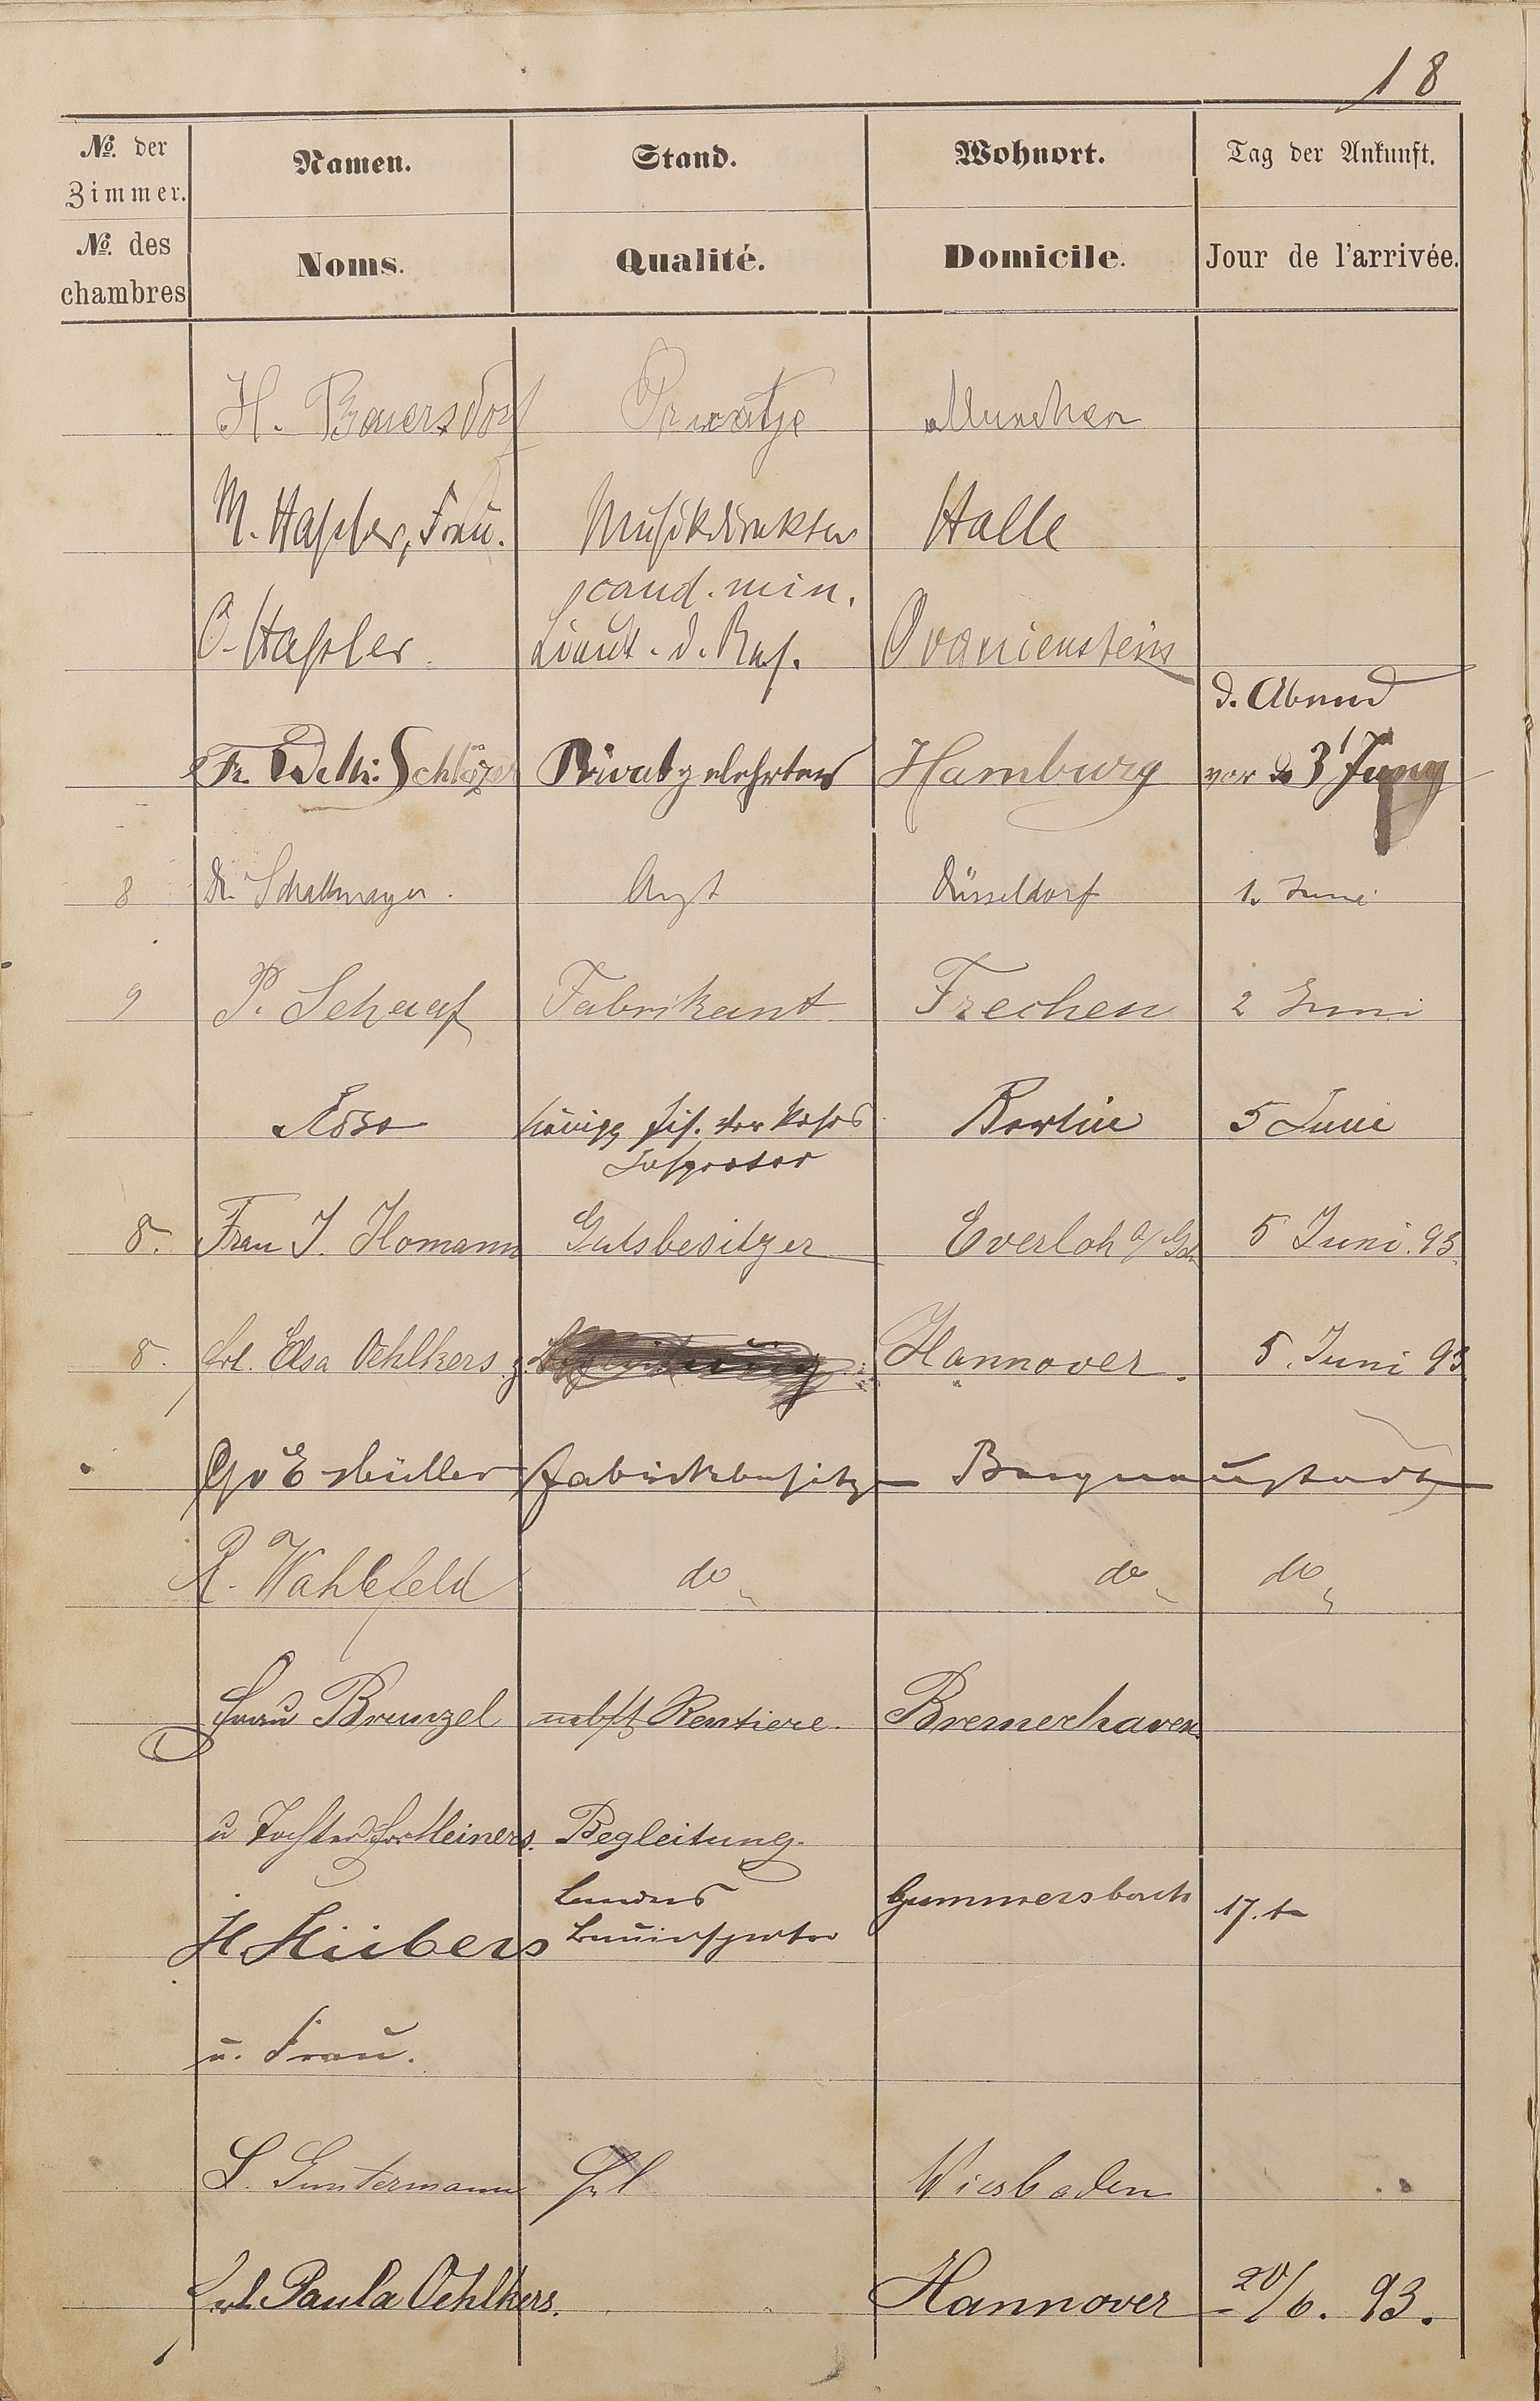 18
No. der Zimmer. Namen. Stand. Wohnort. Tag der Ankunft.
No. des chambres Noms. Qualité. Domicile. Jour de l'arrivée.
H. Bauersdorf Privatge München
M. Haßler, Frau. Musikdirektor Halle
cand. min.
O. Haßler. Lieut. d. Res. Oranienstein
d. Abend
Fr. Schlözer Privatgelehrter Hamburg vor d 3' Juny
8 Dr. Schallmayer. Arzt Düsseldorf 1. Juni
9 P. Schaaf Fabrikant Frechen 2 Juni
Berlin 5 Juni
8. Frau J. Homann Gutsbesitzer Everloh 5 Juni. 93.
8. Frl. Elsa Oehlkers Hannover. 5. Juni 93
Müller Fabrikbesitzer
R. Wahlefeld do do do
Frau Brunzel nebst Rentiere. Bremerhaven
u Tochter Frl Meiners. Begleitung.
Landes Gummersbach 17. te
H Hübers Bauinspektor
u. Frau.
L. Guntermann Frl Wiesbaden
Frl. Paula Oehlkers. Hannover 20/6. 93.